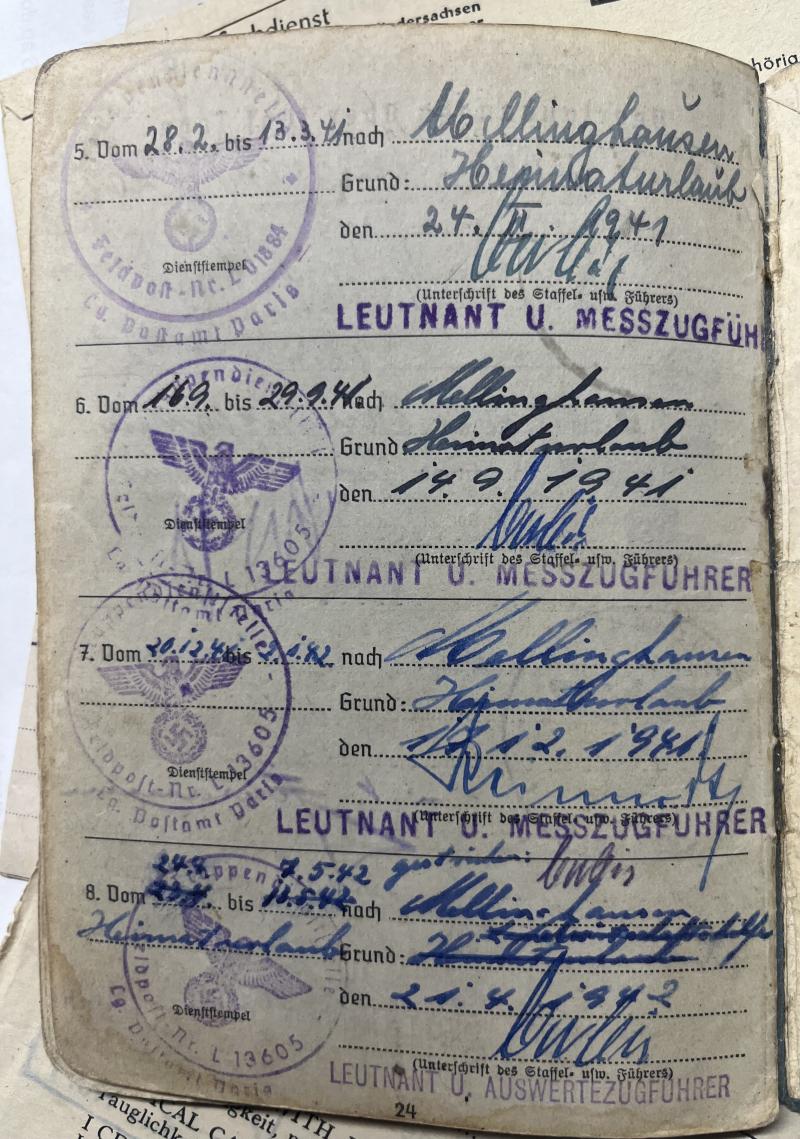 dersachsen
höria
5. Vom 28.2. bis 13.3.41 nach Mellinghausen
Grund: Heimaturlaub
den 24. II. 1941
Dienststempel
Feldpost-Nr. L 01884
Lg. Postamt Paris
(Unterschrift des Staffel- usw. Führers)
LEUTNANT U. MESSZUGFÜH
6. Vom 16.9. bis 29.9.41 nach Mellinghausen
Grund Heimaturlaub
den 14. 9. 1941
Dienststempel
L 13605
Lg. Postamt Paris
(Unterschrift des Staffel- usw. Führers)
LEUTNANT U. MESSZUGFÜHRER
7. Vom 20.12.41 bis 2.1.42 nach Mellinghausen
Grund: Heimaturlaub
den 12. 1941
Dienststempel
Feldpost-Nr. L 13605
Lg. Postamt Paris
(Unterschrift des Staffel- usw. Führers)
LEUTNANT U. MESSZUGFÜHRER
7.5.42
8. Vom bis nach Mellinghausen
Heimaturlaub Grund:
den 21. 4. 1942
Dienststempel
Feldpost-Nr. L 13605
Lg. Postamt Paris
(Unterschrift des Staffel- usw. Führers)
LEUTNANT U. AUSWERTEZUGFÜHRER
24